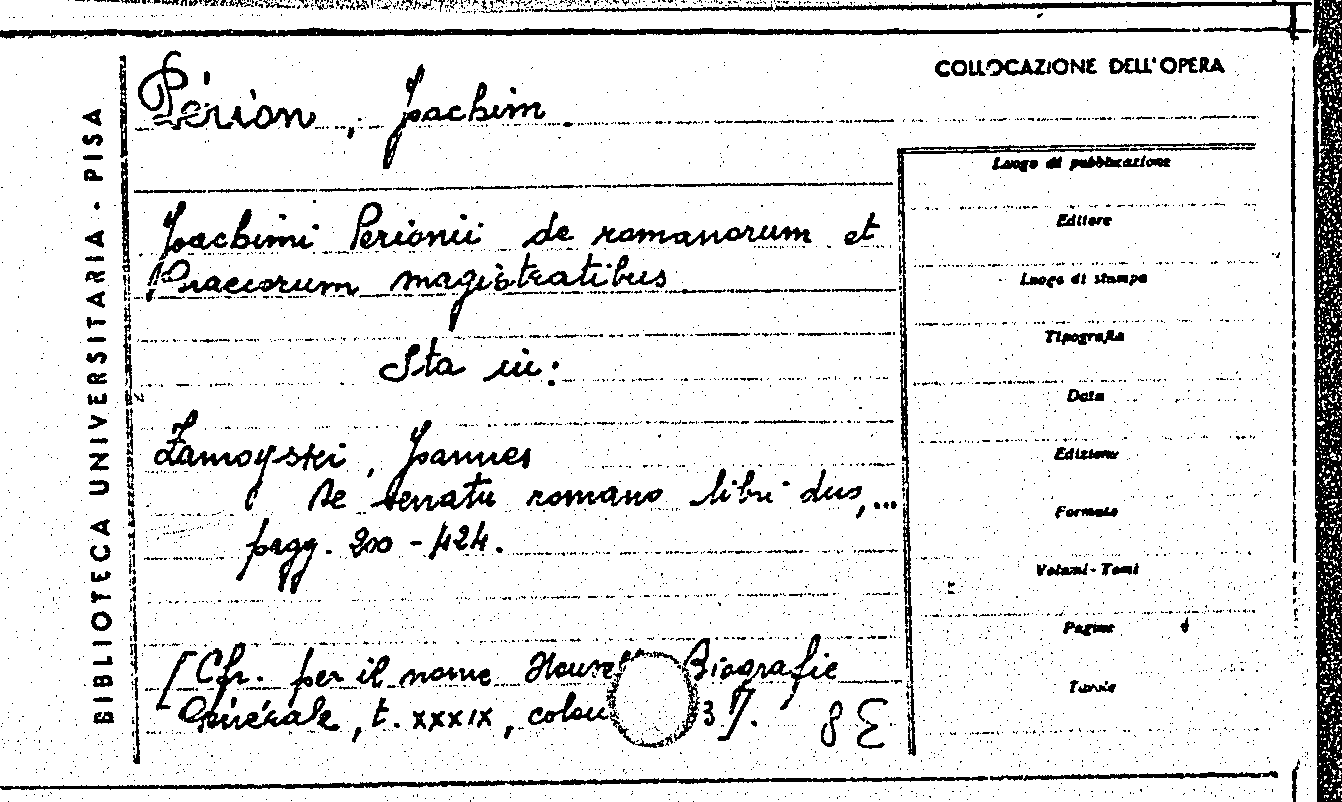 BIBLIOTECA UNIVERSITARIA - PISA
COLLOCAZIONE DELL'OPERA
Périon, Joachim.
Joachimi Perionii de romanorum et
Graecorum magistratibus.
Sta in:
Zamoyski, Joannes
De senatu romano libri duo,...
pagg. 200-424.
[Cfr. per il nome Biografie
Générale, t. XXXIX, 3].
8 E
Luogo di pubblicazione
Editore
Luogo di stampa
Tipografia
Data
Edizione
Formato
Volumi - Tomi
Pagine
Tavole